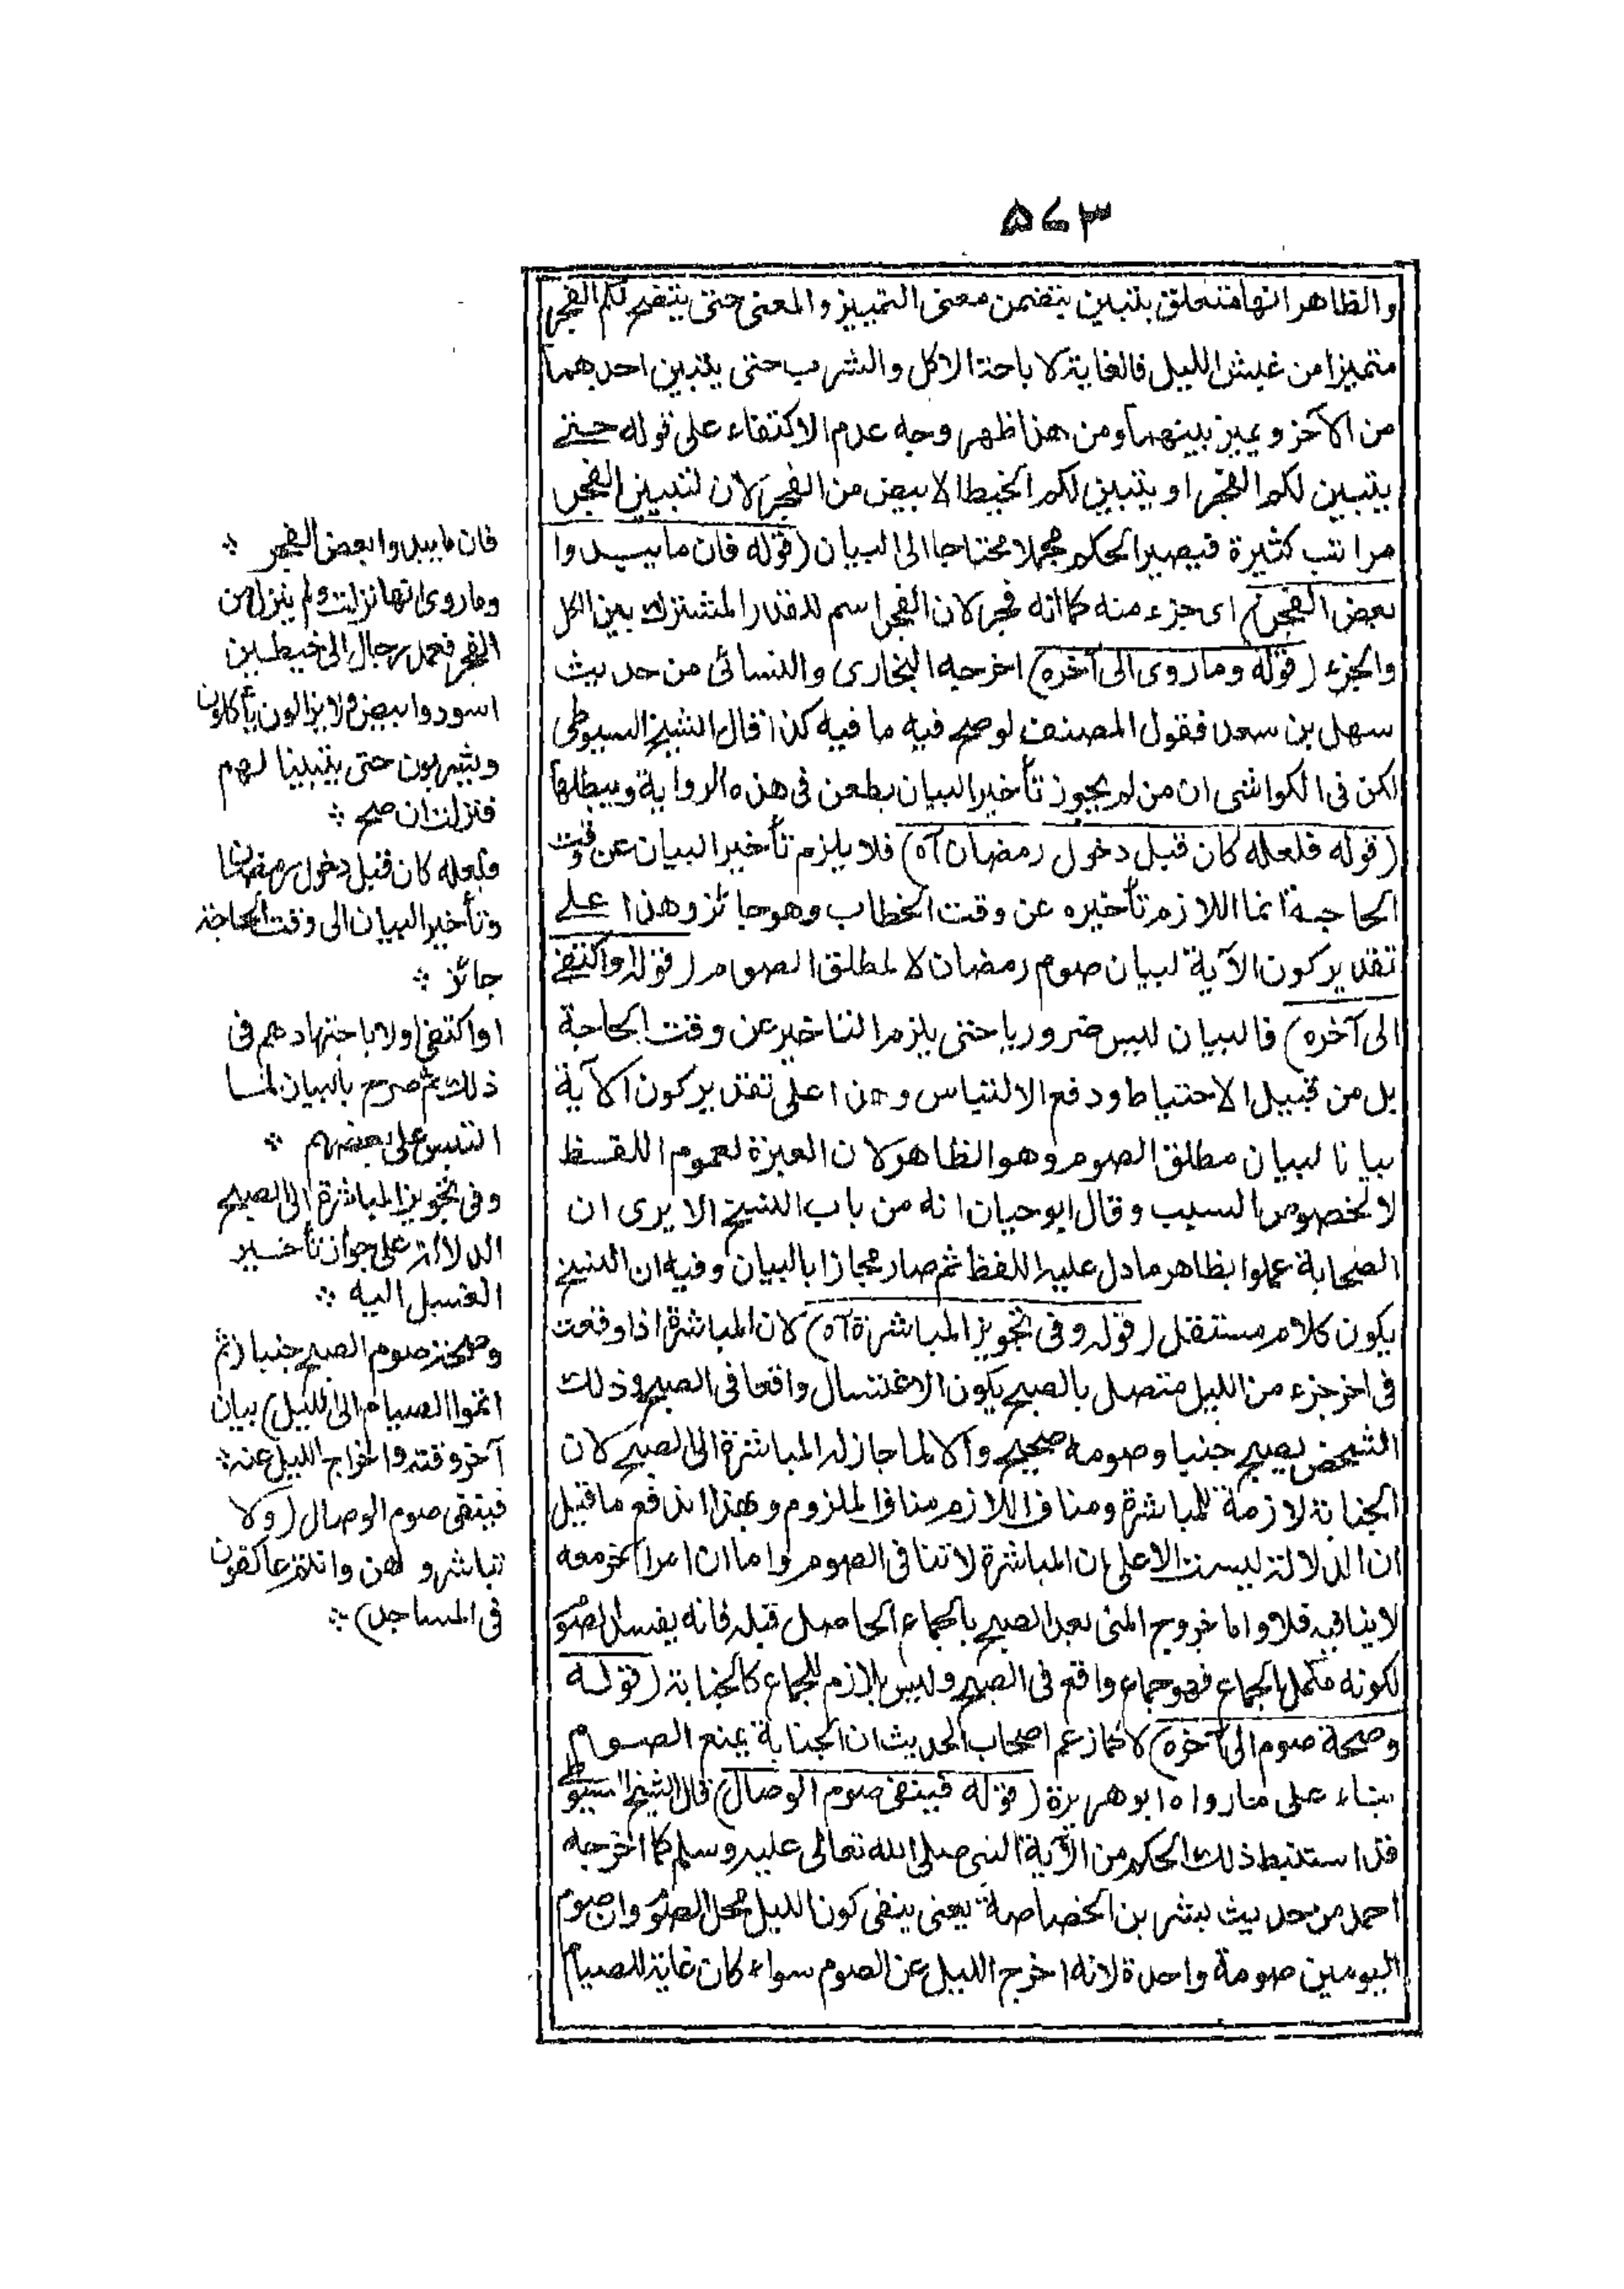 ۵۶۳
والظاهر انها متعلق بتبين يتضمن معنى التمييز والمعنى حتى يتضح لكم الفجر
متميزا من غبش الليل فالغاية لاباحة الاكل والشرب حتى يتبين احدهما
من الآخر ويميز بينهما ومن هذا ظهر وجه عدم الاكتفاء على قوله حتى
يتبين لكم الفجر او يتبين لكم الخيط الابيض من الفجر لان لتبيين الفجر
مراتب كثيرة فيصير الحكم مجملا محتاجا الى البيان (قوله فان ما يبدوا
بعض الفجر) اى جزء منه كما انه فجر لان الفجر اسم للقدر المشترك بين الكل
والجزء (قوله وما روى الى آخره) اخرجه البخارى والنسائى من حديث
سهل بن سعد فقول المصنف لو صح فيه ما فيه كذا قال الشيخ السيوطى
لكن فى الكواشى ان من لم يجوز تأخير البيان يطعن فى هذه الرواية ويبطلها
(قوله فلعله كان قبل دخول رمضان آه) فلا يلزم تأخير البيان عن وقت
الحاجة انما اللازم تأخيره عن وقت الخطاب وهو جائز وهذا على
تقدير كون الآية لبيان صوم رمضان لا لمطلق الصوم (قوله واكتفى
الى آخره) فالبيان ليس ضروريا حتى يلزم التاخير عن وقت الحاجة
بل من قبيل الاحتياط ودفع الالتباس وهذا على تقدير كون الآية
بيانا لبيان مطلق الصوم وهو الظاهر لان العبرة لعموم اللفظ
لا لخصوص السبب وقال ابو حيان انه من باب النسخ الا يرى ان
الصحابة عملوا بظاهر ما دل عليه اللفظ ثم صار مجازا بالبيان وفيه ان النسخ
يكون كلام مستقل (قوله وفى تجويز المباشرة آه) لان المباشرة اذا وقعت
فى اخر جزء من الليل متصل بالصبح يكون الاغتسال واقعا فى الصبح وذلك
الشخص يصبح جنبا وصومه صحيح والا لما جاز له المباشرة الى الصبح لان
الجنابة لازمة للمباشرة ومنافى اللازم مناف الملزوم وبهذا اندفع ما قيل
ان الدلالة ليست الا على ان المباشرة لا تنافى الصوم واما ان امرا آخر معه
لا ينافيه فلا واما خروج المنى بعد الصبح بالجماع الحاصل قبله فانه يفسد الصوم
لكونه مكمل الجماع فهو جماع واقع فى الصبح وليس بلازم للجماع كالجنابة (قوله
وصحة صوم الى آخره) لا كما زعم اصحاب الحديث ان الجنابة يمنع الصوم
بناء على ما رواه ابو هريرة (قوله فينتفى صوم الوصال) قال الشيخ السيوطى
قد استنبط ذلك الحكم من الآية النبى صلى الله تعالى عليه وسلم كما اخرجه
احمد من حديث بشر بن الخصاصة يعنى ينفى كون الليل محل الصوم وان صوم
اليومين صومة واحدة لانه اخرج الليل عن الصوم سواء كان غاية للصيام
فان ما يبدوا بعض الفجر ⁘
وما روى انها نزلت ولم ينزل من
الفجر فعمد رجال الى خيطين
اسود وابيض ولا يزالون يأكلون
ويشربون حتى يتبينا لهم
فنزلت ان صح ⁘
فلعله كان قبل دخول رمضان
وتأخير البيان الى وقت الحاجة
جائز ⁘
او اكتفى اولا باجتهادهم فى
ذلك ثم صرح بالبيان لما
التبس على بعضهم ⁘
وفى تجويز المباشرة الى الصبح
الدلالة على جواز تأخير
الغسل اليه ⁘
وصحة صوم الصبح جنبا (ثم
اتموا الصيام الى الليل) بيان
آخر وقته واخراج الليل عنه ⁘
فينتفى صوم الوصال (ولا
تباشروهن وانتم عاكفون
فى المساجد) ⁘